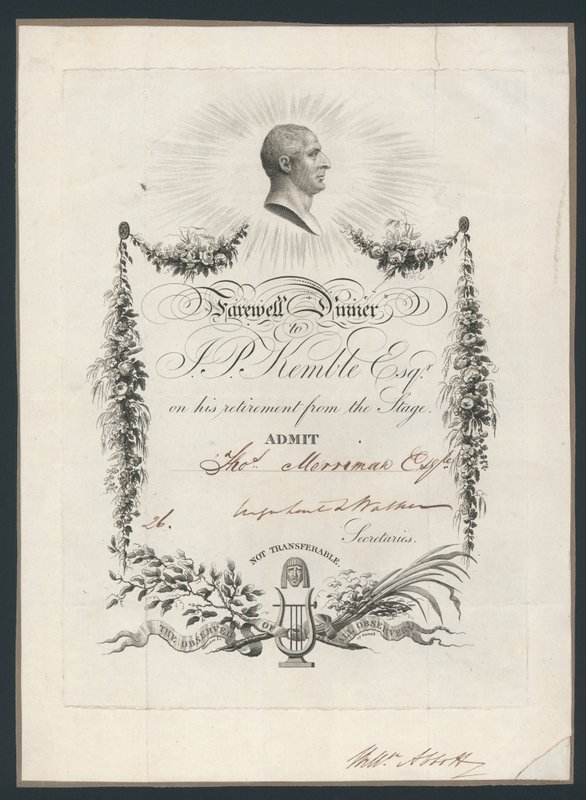 Farewell Dinner
to
J. P. Kemble Esqr.
on his retirement from the Stage.
ADMIT
Thos. Merriman Esqr.
26.
Secretaries.
NOT TRANSFERABLE.
THE OBSERVED OF ALL OBSERVERS
Willm. Abbott